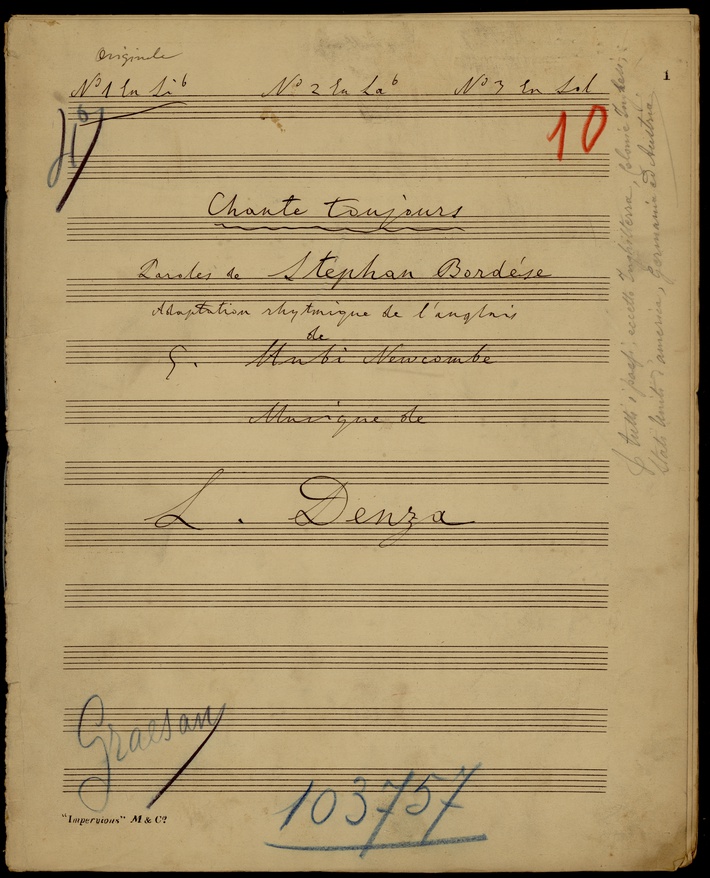 Originale
Nº 1 En Si b Nº 2 En La b Nº 3 En Sol
1
10
Chante toujours
Paroles de Stephan Bordèse
Adaptation rhytmique de l'anglais
de
G. Hubi Newcombe
Musique de
L. Denza
Graesan
103757
"Impervious" M & Co.
p tutti i paesi; eccetto Inghilterra, Colonie Inglesi;
Stati Uniti d'america, Germania ed Austria.